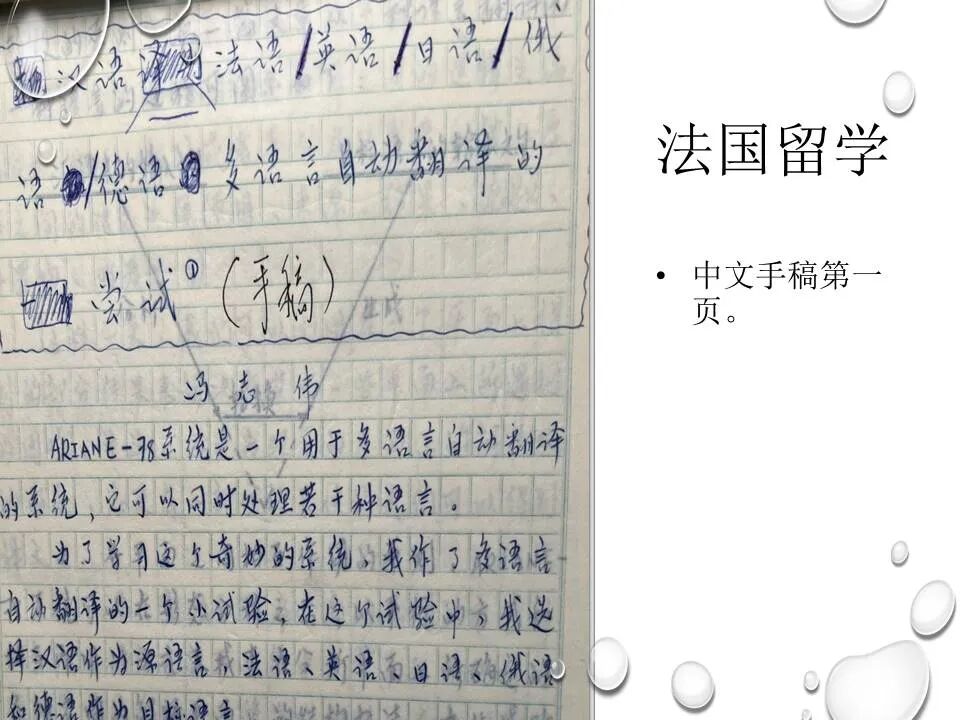 汉语 法语/英语/日语/俄
语/德语 多语言自动翻译的
尝试①(手稿)
冯志伟
ARIANE-78系统是一个用于多语言自动翻译
的系统,它可以同时处理若干种语言。
为了学习这个奇妙的系统,我作了多语言
自动翻译的一个小试验,在这个试验中,我选
择汉语作为源语言,法语、英语、日语、俄语
和德语作为目标语言
法国留学
• 中文手稿第一
页。